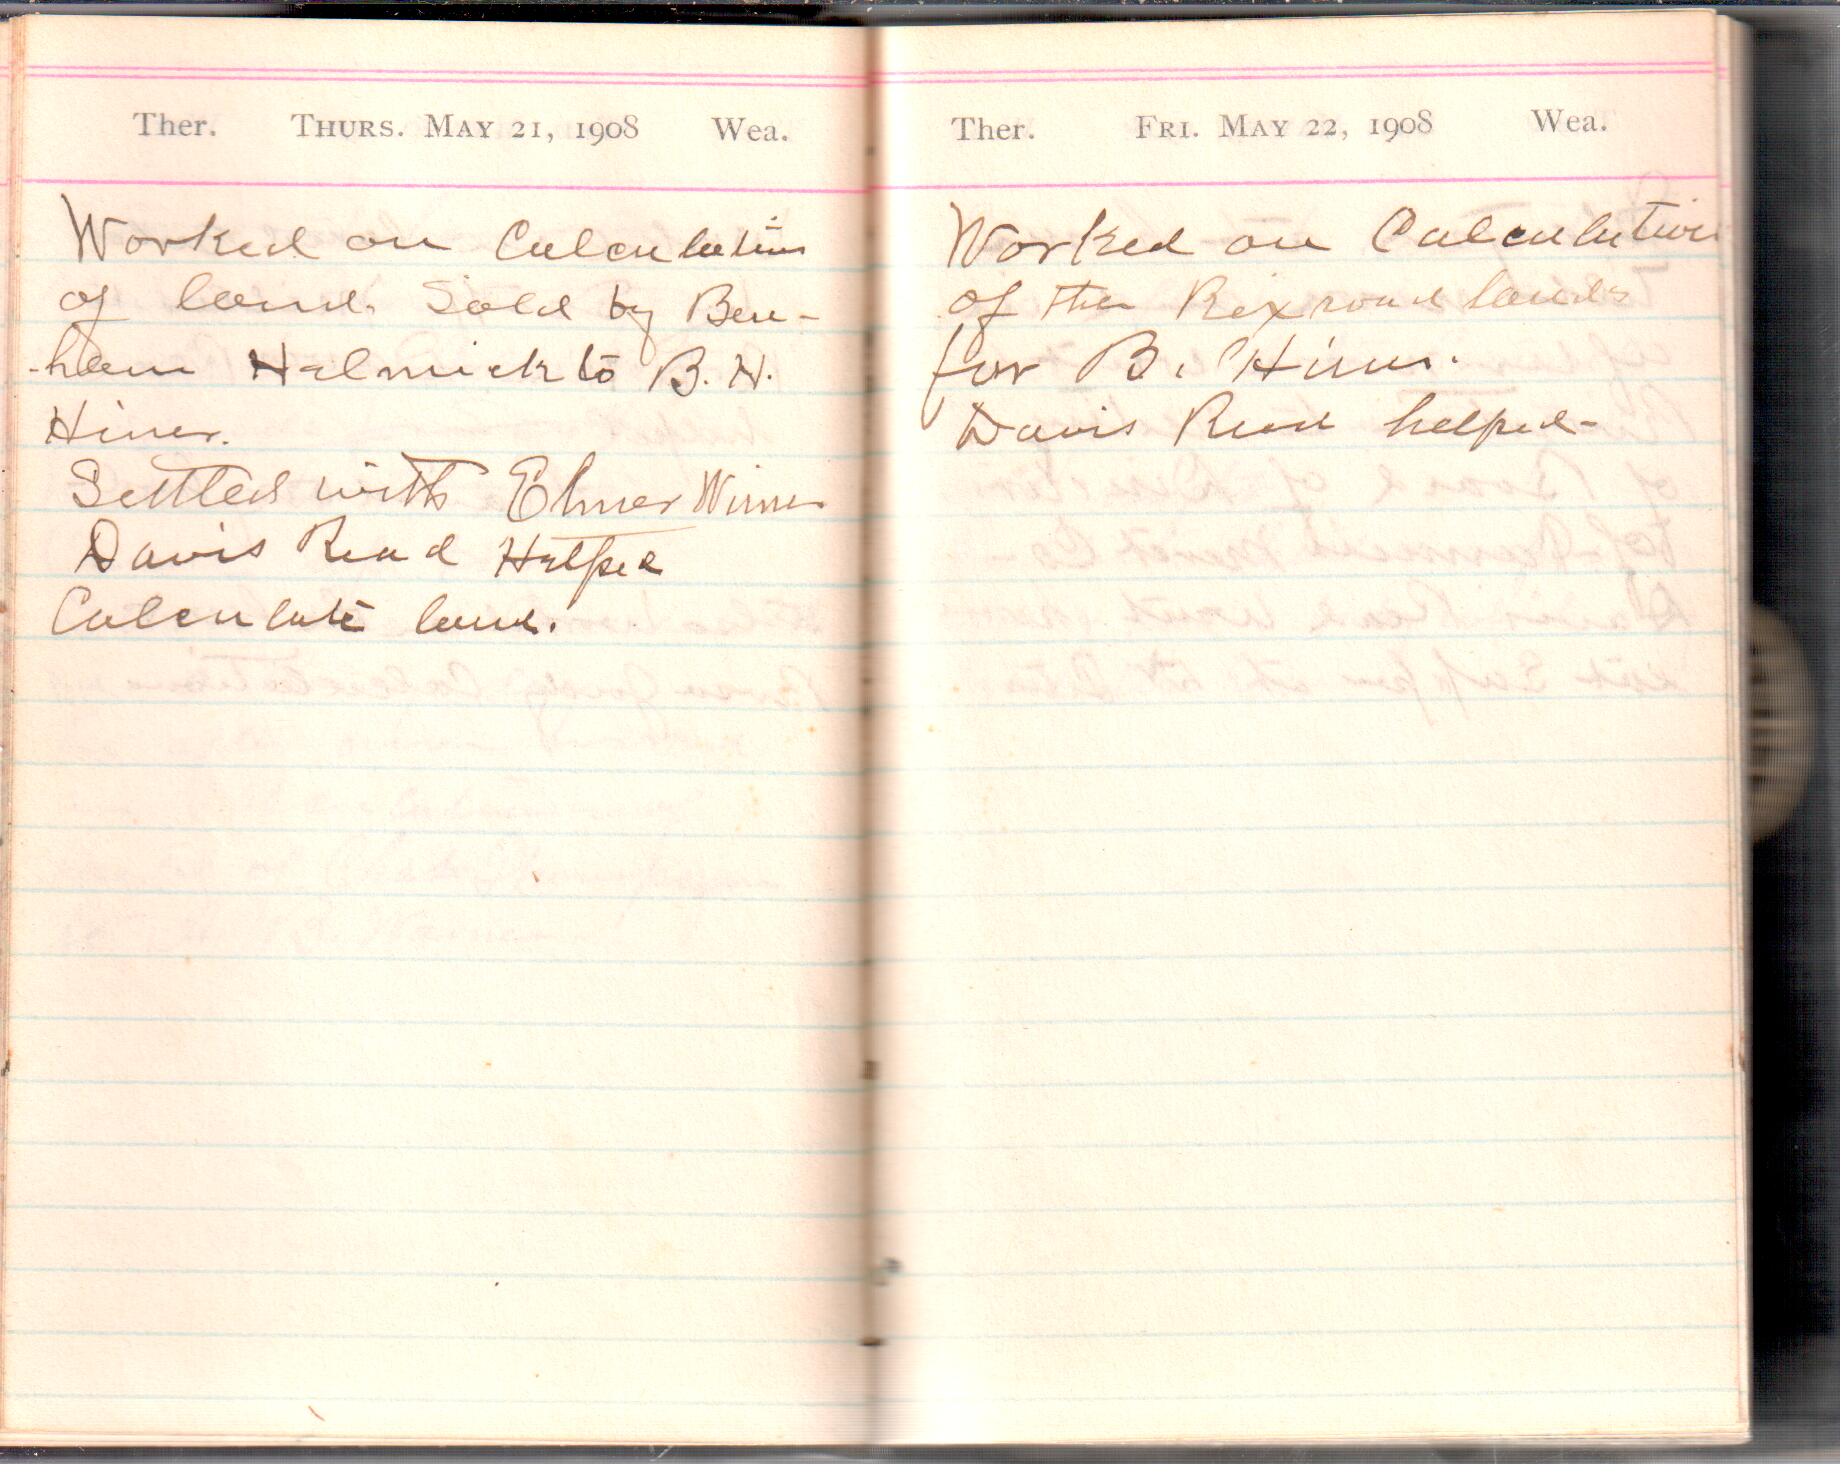 Ther. THURS. MAY 21, 1908 Wea.
Worked on Calculations
of land. Sold by Ben-
-ham Helmick to B. H.
Hiner.
Settled with Elmer Wimer
Davis Read Helped
Calculate land.
Ther. FRI. MAY 22, 1908 Wea.
Worked on Calculation
of the Rexroad lands
for B. Hiner.
Davis Read helped-